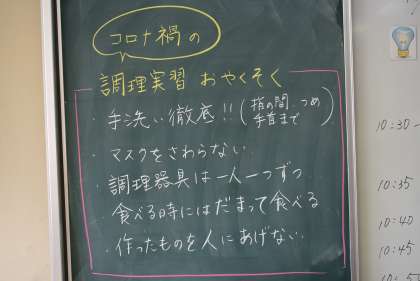 コロナ禍の
調理実習 おやくそく
・手洗い徹底!!(指の間、つめ
手首まで)
・マスクをさわらない
・調理器具は一人一つずつ
・食べる時にはだまって食べる
・作ったものを人にあげない
10:30-
10:35
10:40
10:45